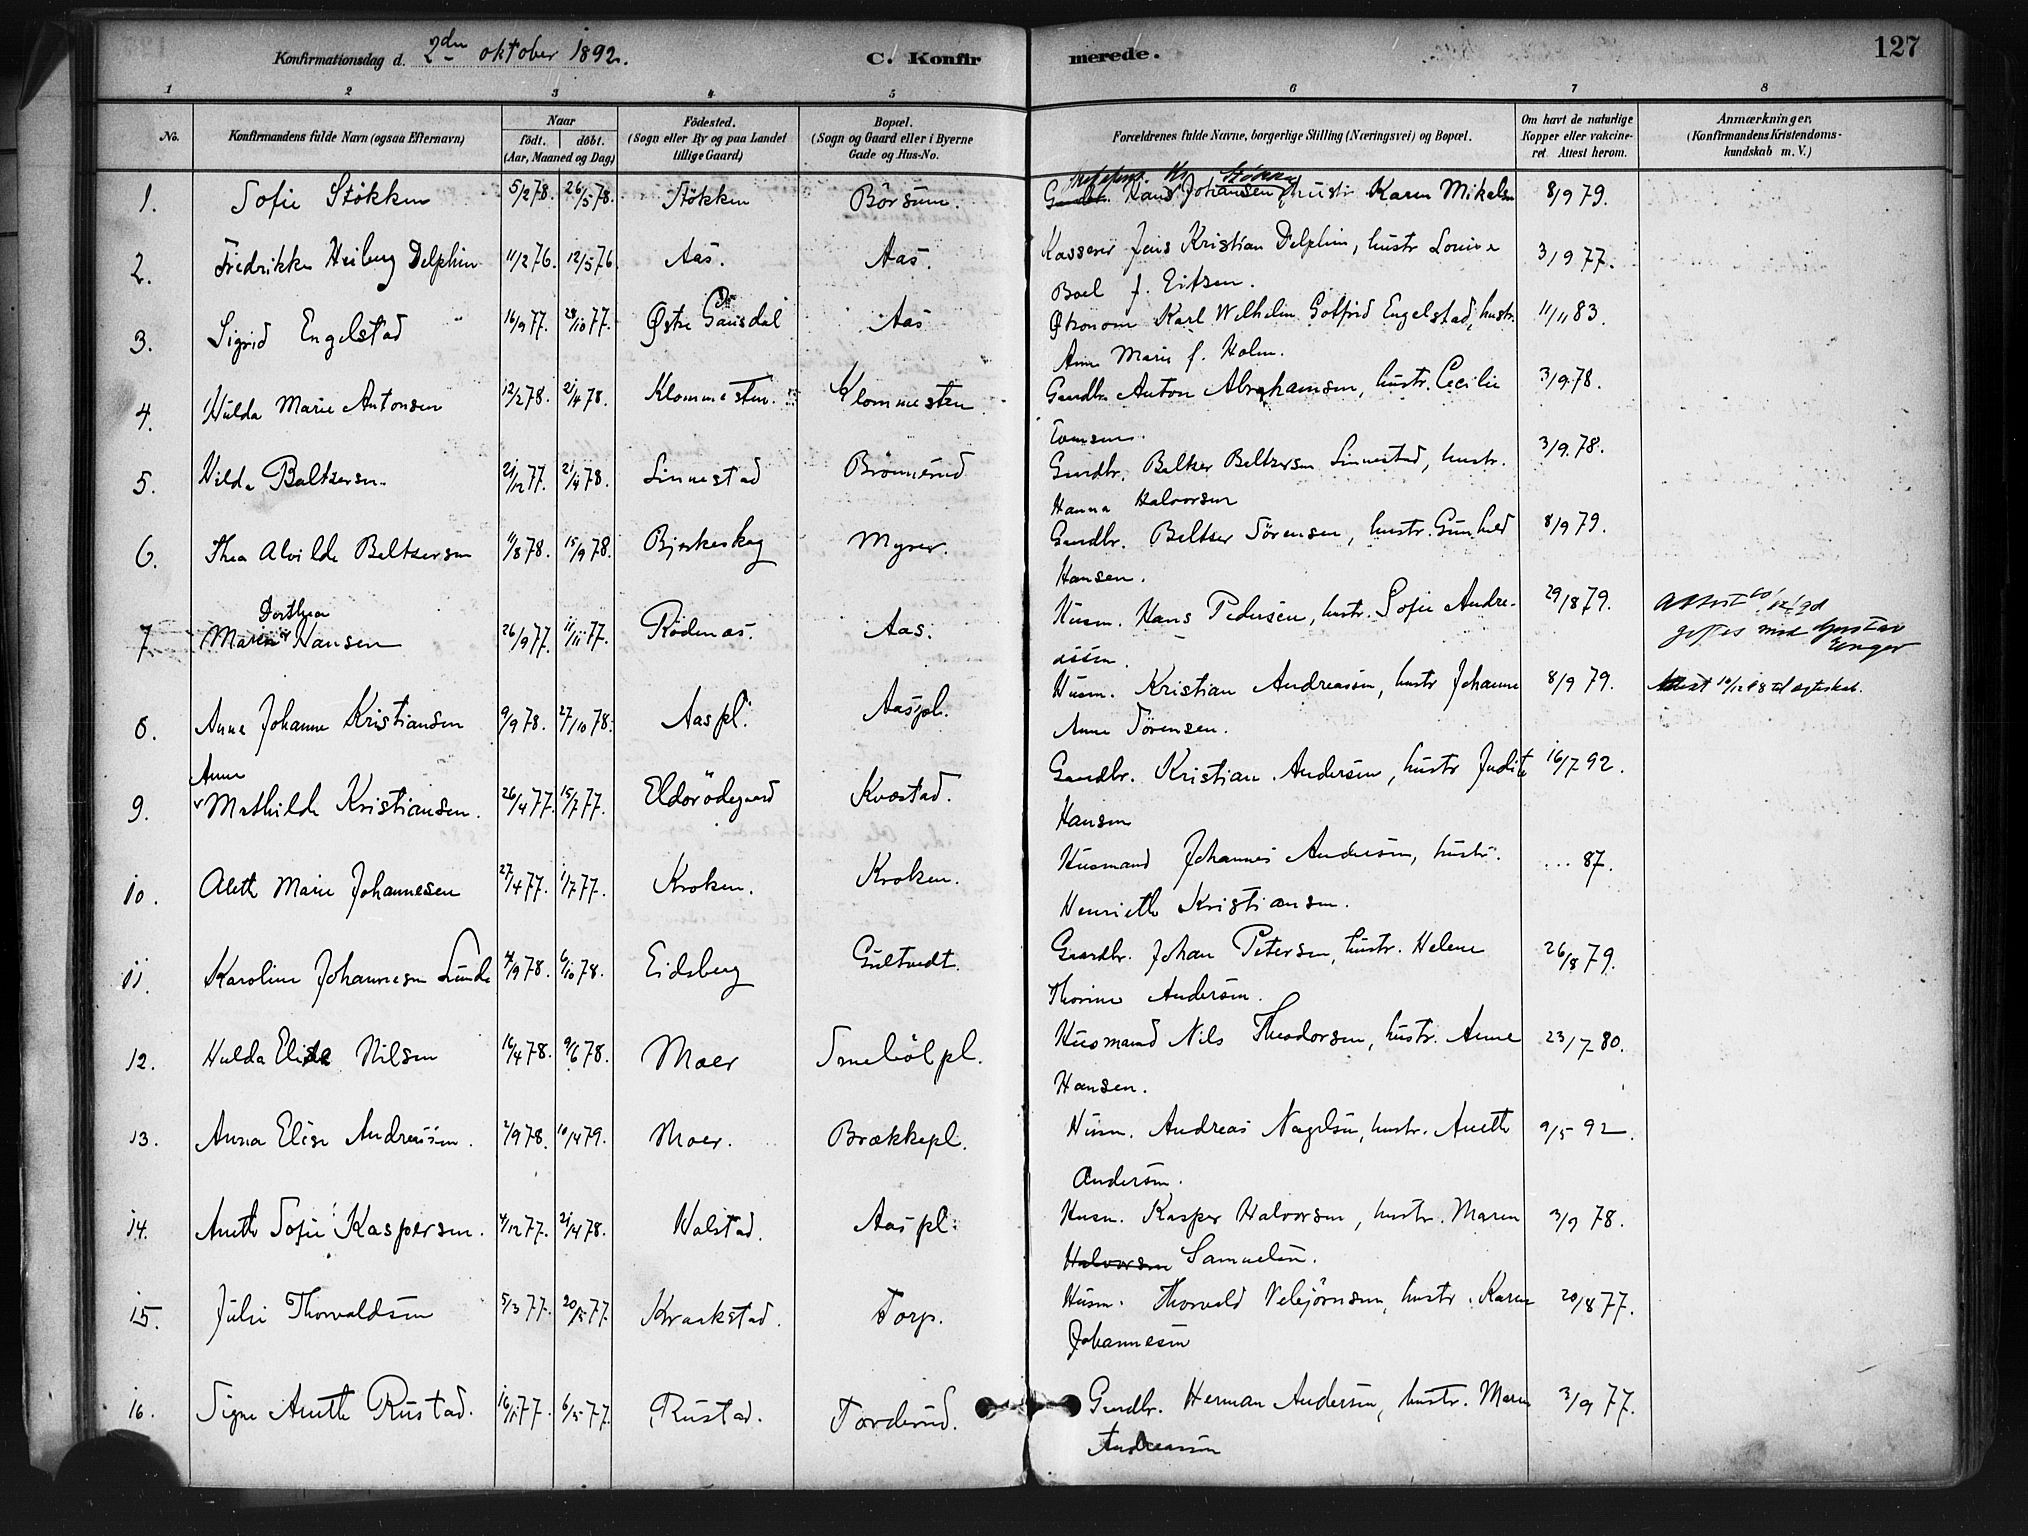 Konfirmationsdag d. 2den oktober 1892. C. Konfirmerede. 127
1 2 3 4 5 6 7 8
No. Konfirmandens fulde Navn (ogsaa Efternavn) Naar født. døbt. (Aar, Maaned og Dag) Fødested. (Sogn eller By og paa Landet tillige Gaard) Bopæl. (Sogn og Gaard eller i Byerne Gade og Hus-No. Forældrenes fulde Navne, borgerlige Stilling (Næringsvei) og Bopæl. Om havt de naturlige Kopper eller vakcineret. Attest herom. Anmærkninger, (Konfirmandens Kristendomskundskab m. V.)
1. Sofie Stökken 5/2 78. 26/5 78. Stökken Börsum. Gardbr. Hans Johansen Stökken, hustr Karen Mikelsen 8/9 79.
2. Fredrikke Heiberg Delphin 11/2 76. 12/5 76. Aas. Aas. Kasserer Jens Kristian Delphin, hustr Louise 3/9 77.
Boel f. Eitsen.
3. Sigrid Engelstad 16/9 77. 28/10 77. Østre Gausdal Aas Økonom Karl Wilhelm Gotfrid Engelstad, hustr. 11/11 83.
Anne Marie f. Holm.
4. Hulda Marie Antonsen 12/2 78. 21/4 78. Klommesten. Klommesten Gardbr. Anton Abrahamsen, hustr. Cecilie 3/9 78.
Tomsen.
5. Hilda Baltsersen. 21/12 77. 21/4 78. Linnestad Brönnerud Gardbr. Baltser Baltzersen Linnestad, hustr. 3/9 78.
Hanna Halvorsen
6. Thea Alvilde Beltsersen 11/8 78. 15/9 78. Bjerkeskog Myrer. Gardbr. Beltser Sörensen, hustr. Gunhild 8/9 79.
Hansen.
7. Maria Dorthea Hansen 26/9 77. 11/11 77. Rödenæs. Aas. Husm. Hans Pedersen, hustr. Sofie Andreassen. 29/8 79. Attest giftes med Gustav Unger
8. Anne Johanne Kristiansen 9/9 78. 27/10 78. Aaspl. Aaspl. Husm. Kristian Andreassen, hustr Johanne 8/9 79. Attest 10/12 98 til egteskab.
Anne Sörensen.
9. Anne Mathilde Kristiansen. 26/4 77. 15/7 77. Eldorödegaard Kvæstad. Gardbr. Kristian Andersen, hustr Judite 16/7 92.
Hansen
10. Aleth Marie Johannesen 27/4 77. 1/7 77. Kroken. Kroken. Husmand Johannes Andersen, hustr. ... 87.
Henriette Kristiansen.
11. Karoline Johannesen Lunde 4/9 78. 6/10 78. Eidsberg Gultvedt. Gaardbr. Johan Petersen, hustr. Helene 26/8 79.
Thorine Andersen.
12. Hulda Elise Nilsen 16/4 78. 9/6 78. Moer Smeböl pl. Husmand Nils Theodorsen, hustr. Anne 23/7 80.
Hansen.
13. Anna Elise Andreassen. 2/9 78. 10/4 79. Moer. Brækkepl. Husm. Andreas Nagelsen, hustr. Aneth 9/5 92.
Andersen.
14. Aneth Sofie Kaspersen. 4/12 77. 21/4 78. Holstad. Aaspl. Husm. Kasper Halvorsen, hustr. Maren 3/9 78.
Halvorsen Samuelsen.
15. Julie Thorvaldsen 5/3 77. 20/5 77. Kraakstad. Torp. Husm. Thorvald Vebjörnsen, hustr. Karen 20/8 77.
Johannesen
16. Signe Aneth Rustad. 16/1 77. 6/5 77. Rustad. Torderud. Gardbr. Herman Andersen, hustr. Maren 3/9 77.
Andreassen